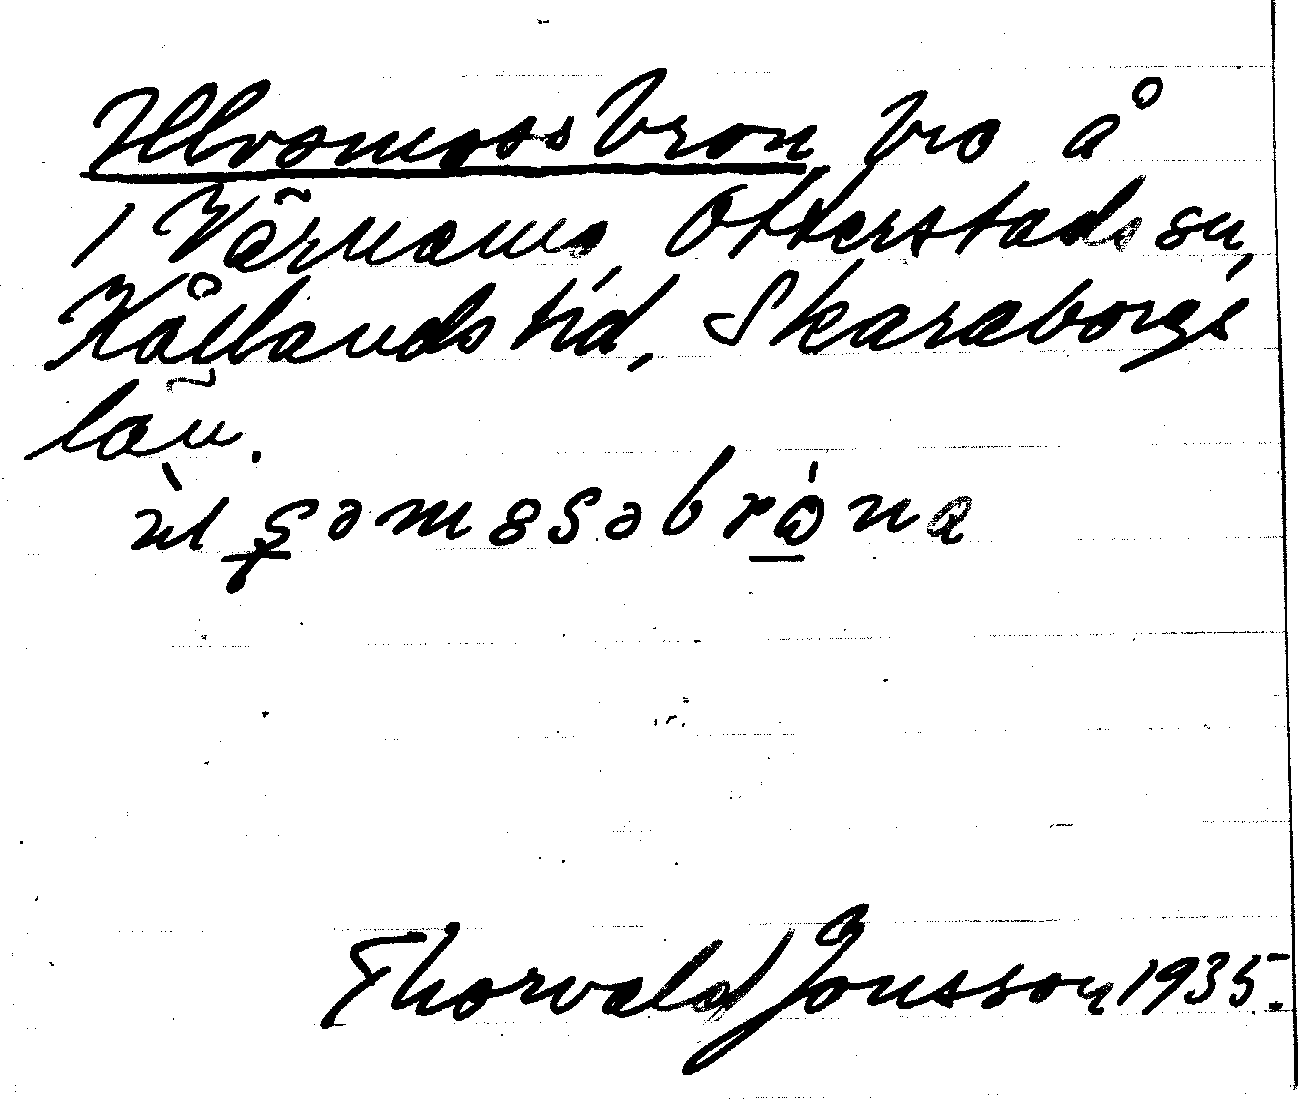 Ulvsmossbron bro å
i Värnäms, Otterstads sn,
Kållands hd, Skaraborgs
län.
Thorvald Jonsson 1935.